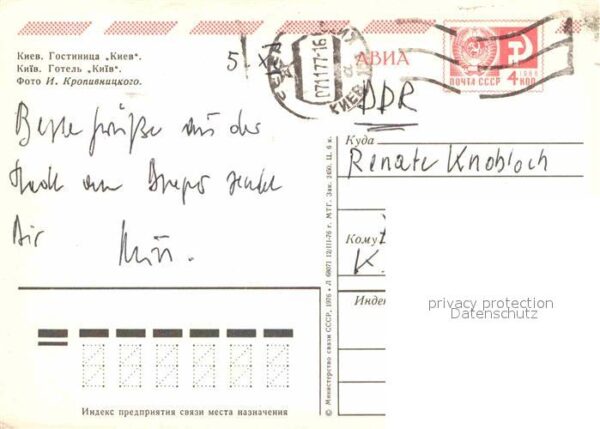 Киев. Гостиница „Киев“.
Київ. Готель „Київ“.
Фото И. Кропивницкого.
5. X
АВИА
1966
ПОЧТА СССР 4 КОП
КИЕВ
071177-16
DDR
Beste Grüße aus der
Stadt am Dnepr sendet
Dir
Куда
Renate Knobloch
Кому
K.
Индекс
privacy protection
Datenschutz
© Министерство связи СССР, 1976 • Л 68071 12/III-76 г. МТГ. Зак. 2450. Ц. 6 к.
Индекс предприятия связи места назначения